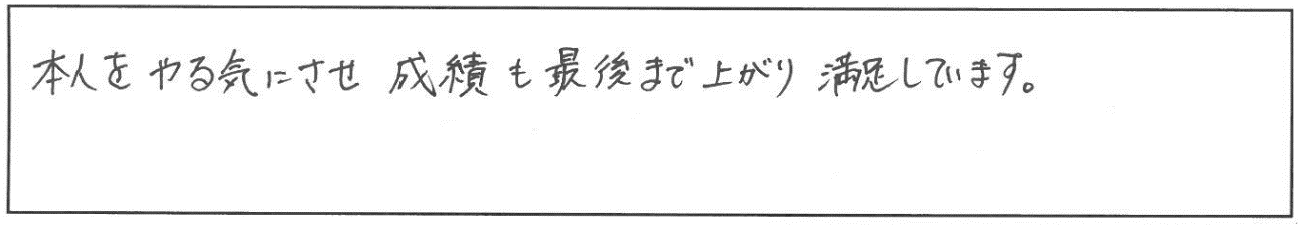 本人をやる気にさせ 成績も最後まで上がり 満足しています。